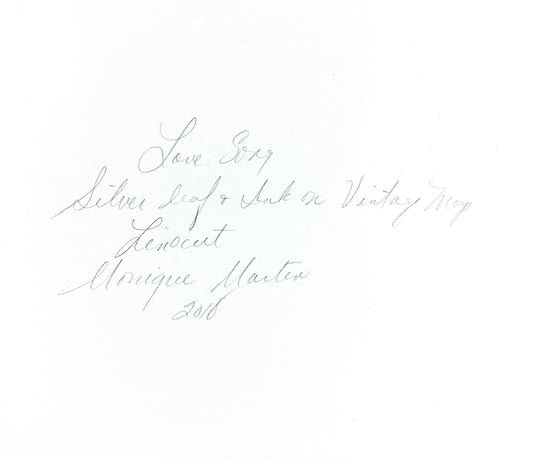 Love Song
Silver leaf & Ink on Vintage Map
Linocut
Monique Martin
2018